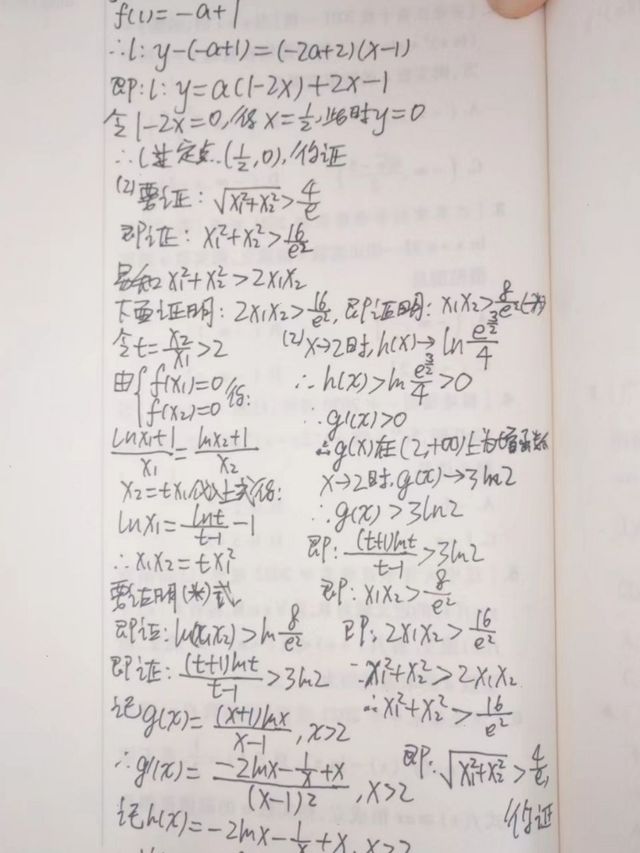 f(1)=-a+1
∴l: y-(-a+1)=(-2a+2)(x-1)
即:l: y=a(1-2x)+2x-1
令1-2x=0,得x=1/2,此时y=0
∴l过定点(1/2,0),得证
(2)要证: √(x₁²+x₂²)>4/e
即证: x₁²+x₂²>16/e²
易知2 x₁²+x₂²>2x₁x₂
下面证明: 2x₁x₂>16/e², 即证明: x₁x₂>8/e²(*)
令t=x₂/x₁>2
由{f(x₁)=0 f(x₂)=0 得:
(lnx₁+1)/x₁=(lnx₂+1)/x₂
x₂=tx₁代以上式得:
lnx₁=lnt/(t-1)-1
∴x₁x₂=tx₁²
要证明(*)式,
即证:ln(x₁x₂)>ln8/e²
即证: (t+1)lnt/(t-1)>3ln2
记g(x)=(x+1)lnx/(x-1), x>2
∴g'(x)=(-2lnx-1/x+x)/(x-1)², x>2
记h(x)=-2lnx-1/x+x, x>2
(2)x→2时,h(x)→ln e^(3/2)/4
∴h(x)>ln e^(3/2)/4>0
∴g'(x)>0
∴g(x)在(2,+∞)上为增函数
x→2时,g(x)→3ln2
∴g(x)>3ln2
即: (t+1)lnt/(t-1)>3ln2
即: x₁x₂>8/e²
即: 2x₁x₂>16/e²
∵x₁²+x₂²>2x₁x₂
∴x₁²+x₂²>16/e²
即:√(x₁²+x₂²)>4/e,
得证